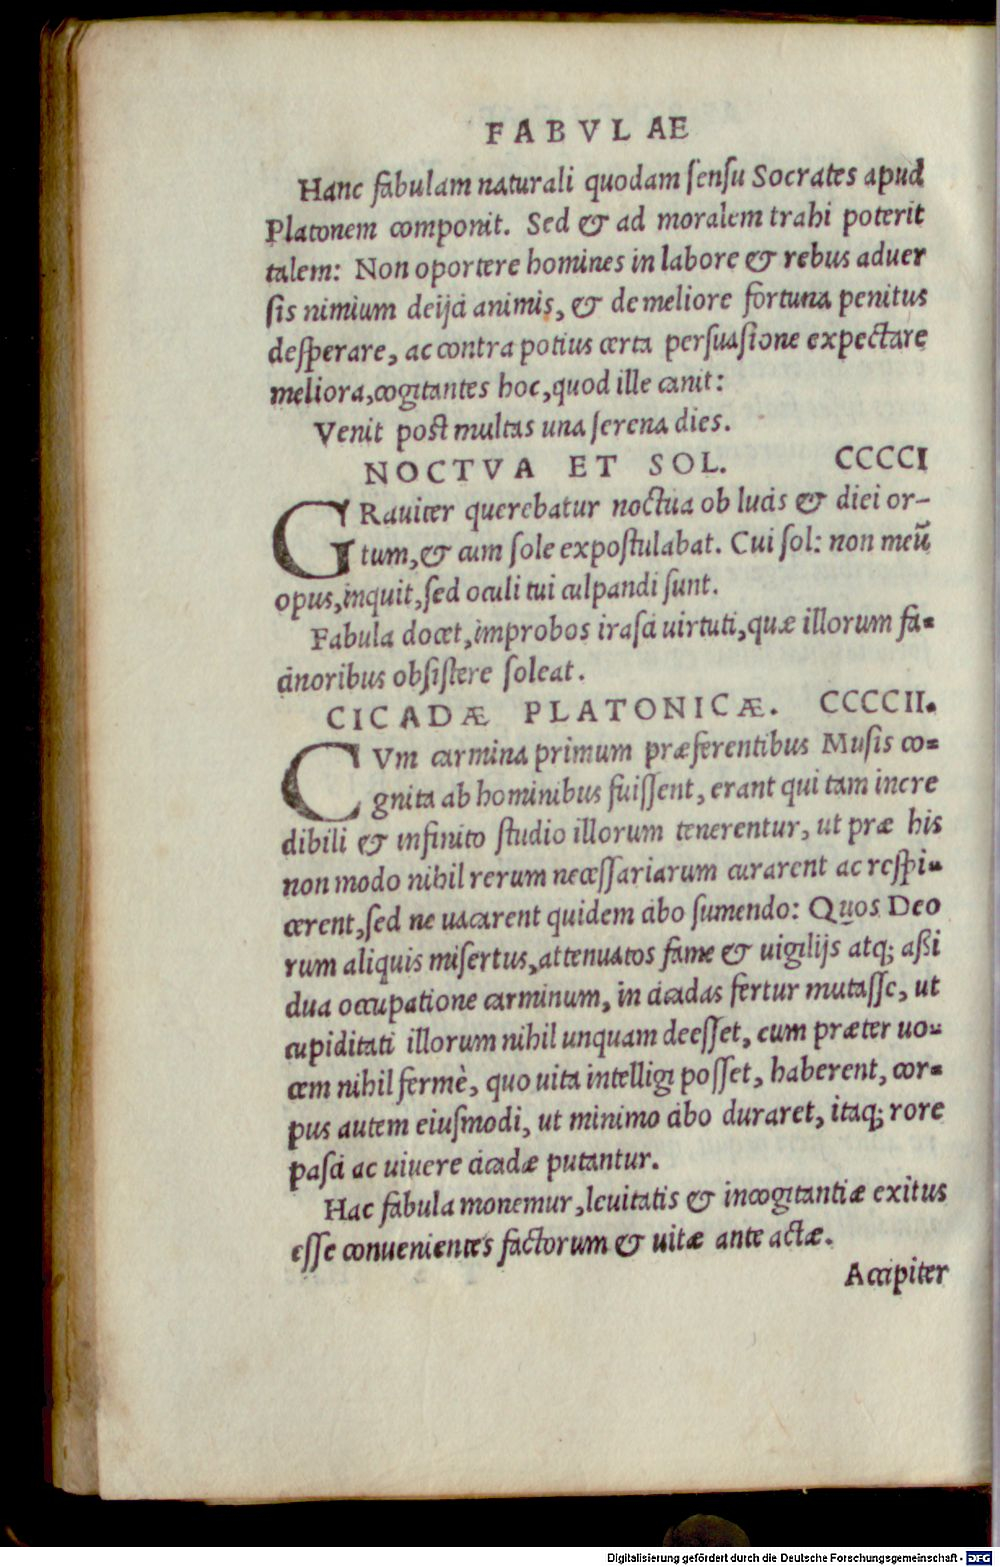 FABVLAE
Hanc fabulam naturali quodam sensu Socrates apud
Platonem componit. Sed & ad moralem trahi poterit
talem: Non oportere homines in labore & rebus aduer
sis nimium deijci animis, & de meliore fortuna penitus
desperare, ac contra potius certa persuasione expectare
meliora, cogitantes hoc, quod ille canit:
Venit post multas una serena dies.
NOCTVA ET SOL. CCCCI
GRauiter querebatur noctua ob lucis & diei or-
tum, & cum sole expostulabat. Cui sol: non meũ
opus, inquit, sed oculi tui culpandi sunt.
Fabula docet, improbos irasci uirtuti, quæ illorum fa-
cinoribus obsistere soleat.
CICADÆ PLATONICÆ. CCCCII.
CVm carmina primum præferentibus Musis co-
gnita ab hominibus fuissent, erant qui tam incre
dibili & infinito studio illorum tenerentur, ut præ his
non modo nihil rerum necessariarum curarent ac respi-
cerent, sed ne uacarent quidem cibo sumendo: Quos Deo
rum aliquis misertus, attenuatos fame & uigilijs atq; aßi
dua occupatione carminum, in cicadas fertur mutasse, ut
cupiditati illorum nihil unquam deesset, cum præter uo-
cem nihil fermè, quo uita intelligi posset, haberent, cor-
pus autem eiusmodi, ut minimo cibo duraret, itaq; rore
pasci ac uiuere cicadæ putantur.
Hac fabula monemur, leuitatis & incogitantiæ exitus
esse conuenientes factorum & uitæ ante actæ.
Accipiter
Digitalisierung gefördert durch die Deutsche Forschungsgemeinschaft - DFG